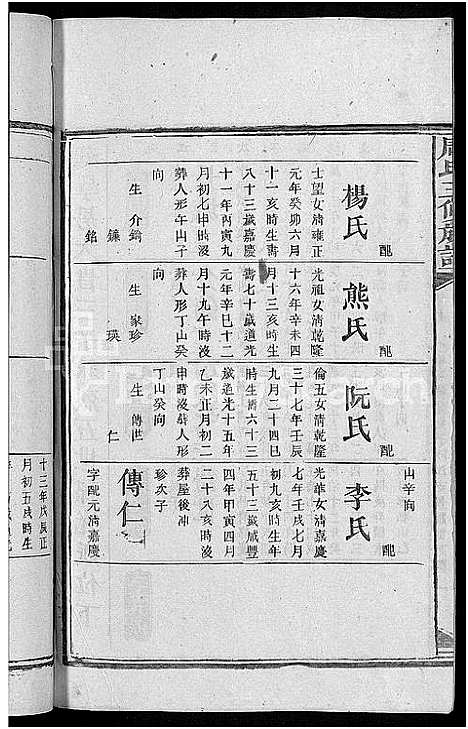 周氏三修族譜
配
楊氏
士望女清雍正
元年癸卯六月
十一亥時生壽
八十三歲嘉慶
十一年丙寅九
月初七申時沒
葬人形午山子
向
生 介錡
鍊
銘
配
熊氏
光祖女清乾隆
十六年辛未四
月十三亥時生
壽七十歲道光
元年辛巳十二
月十九午時沒
葬人形丁山癸
向
生 家珍
瑛
配
阮氏
倫五女清乾隆
三十七年壬辰
九月二十四巳
時生壽六十三
歲道光十五年
乙未正月初二
申時沒葬人形
丁山癸向
生 傳世
仁
山辛向
配
李氏
光華女清嘉慶
七年壬戌七月
初九亥時生年
五十三歲咸豐
四年甲寅四月
二十八亥時沒
葬屋後冲
傳仁
珍次子
字配元清嘉慶
十三年戊辰正
月初五戌時生